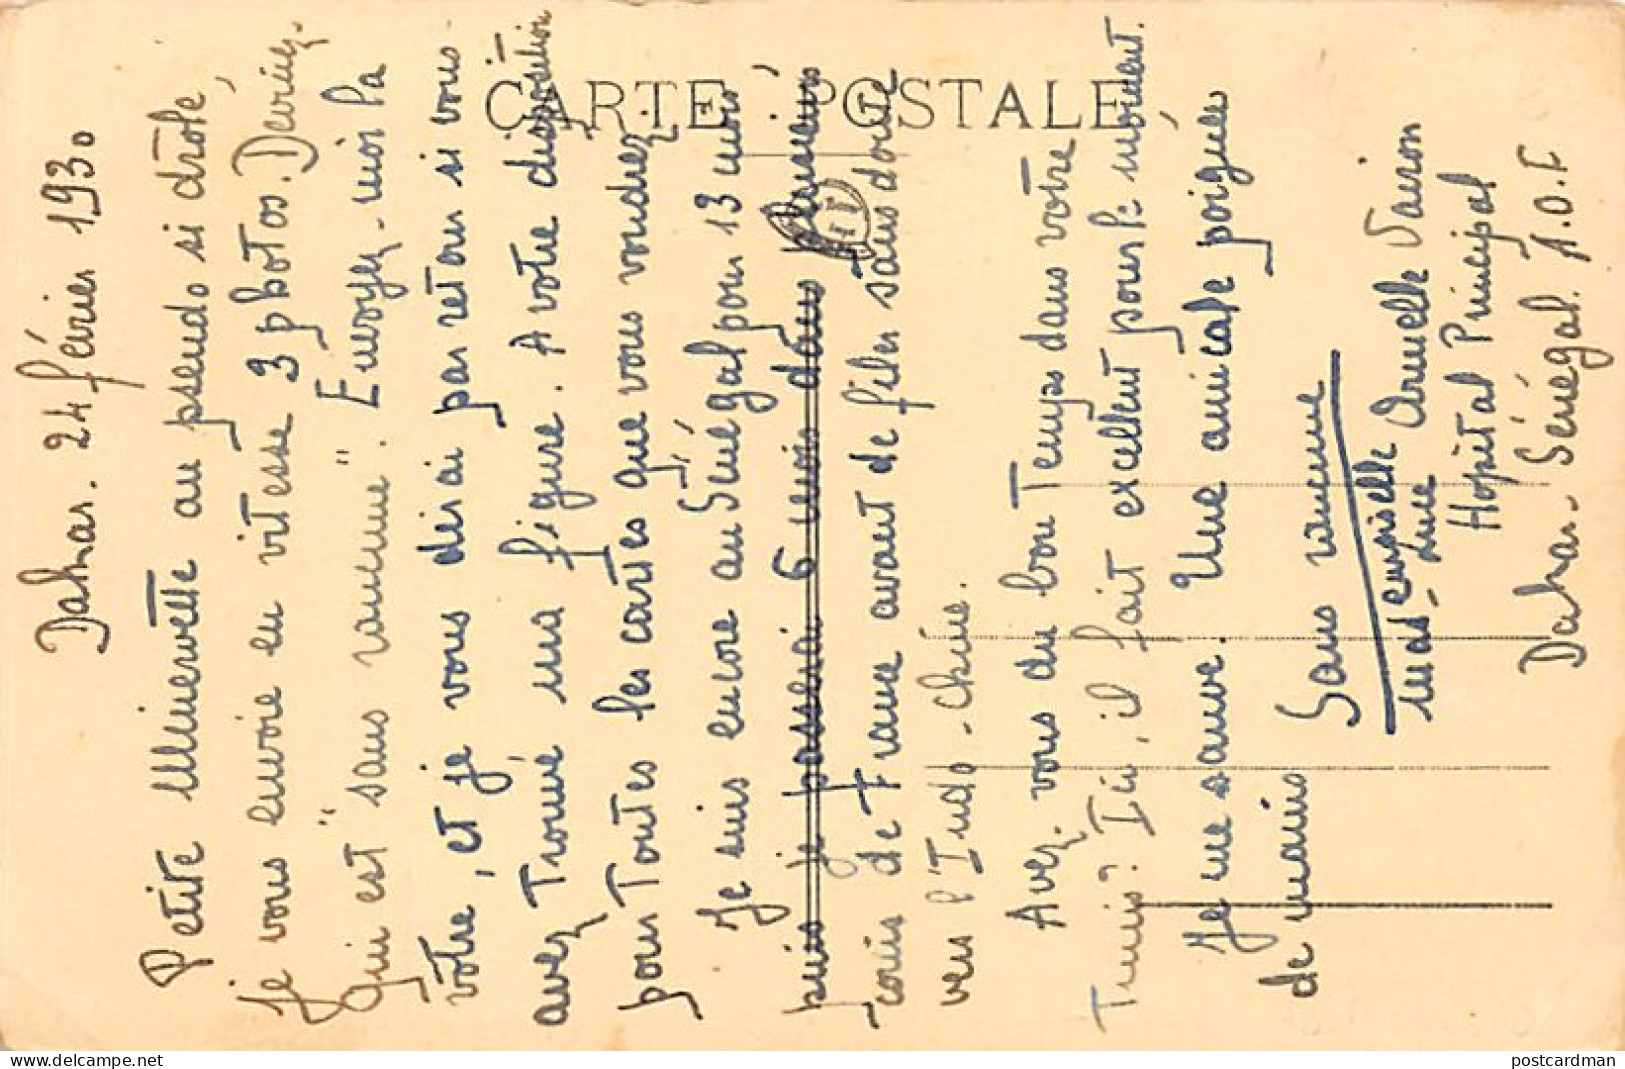 Dakar. 24 février 1930
Petite Minervette au pseudo si drôle,
Je vous envoie en vitesse 3 photos. Devinez-
Qui est "sans rancune". Envoyez-moi la
vôtre, et je vous dirai par retour si vous
avez trouvé ma figure. A votre disposition
pour toutes les cartes que vous voudrez
Je suis encore au Sénégal pour 13 mois
puis je passerai 6 mois dans plusieurs
coins de France avant de filer sans doute
vers l'Indo-chine.
Avez-vous du bon temps dans votre
Tunis? Ici, il fait excellent pour le moment.
Je me sauve. Une amicale poignée
de mains
Sans rancune
Mademoiselle Vaison
Hopital Principal
Dakar. Sénégal. A.O.F
CARTE POSTALE
postcardman